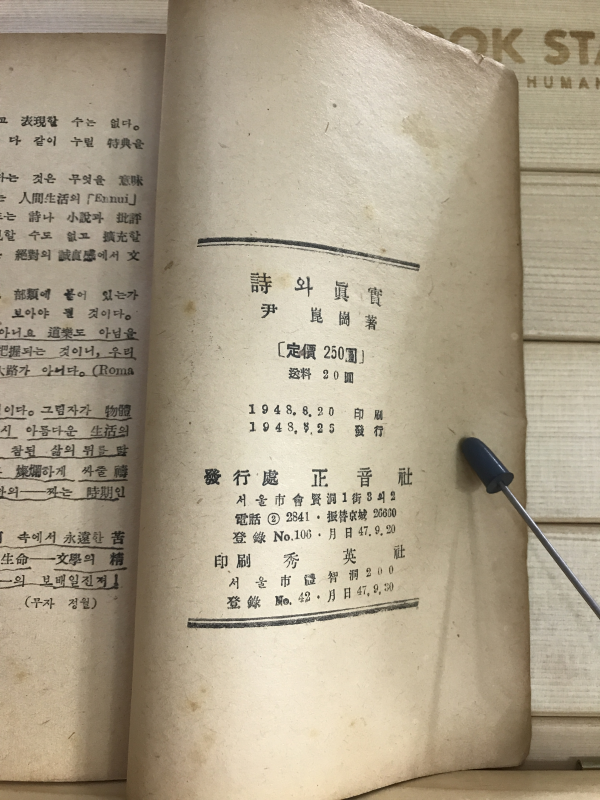 고 表現할 수는 없다。
다 같이 누릴 特典을
하는 것은 무엇을 意味
는 人間生活의「Ennui」
또는 詩나 小說과 批評
현할 수도 없고 擴充할
絕對의 誠直感에서 文
部類에 붙어 있는가
보아야 될 것이다。
아니요 道樂도 아님을
把握되는 것이니, 우리
大路가 아니다。(Roma
것이다。그림자가 物體
시 아름다운 生活의
참된 삶의 뒤를 따
燦爛하게 싸줄 禱
하의——짜는 時期인
속에서 永遠한 苦
生命——文學의 精
——의 보배일진저!
(무자 정월)
詩와 眞實
尹崑崗 著
〔定價 250圓〕
送料 20圓
1948.8.20 印刷
1948.8.25 發行
發行處 正音社
서울市會賢洞1街3의2
電話 ② 2841・振替京城 26660
登錄 No.106・月日47.9.20
印刷 秀英社
서울市 禮智洞200
登錄 No. 42・月日47.9.30
OOK STA
HUMAN